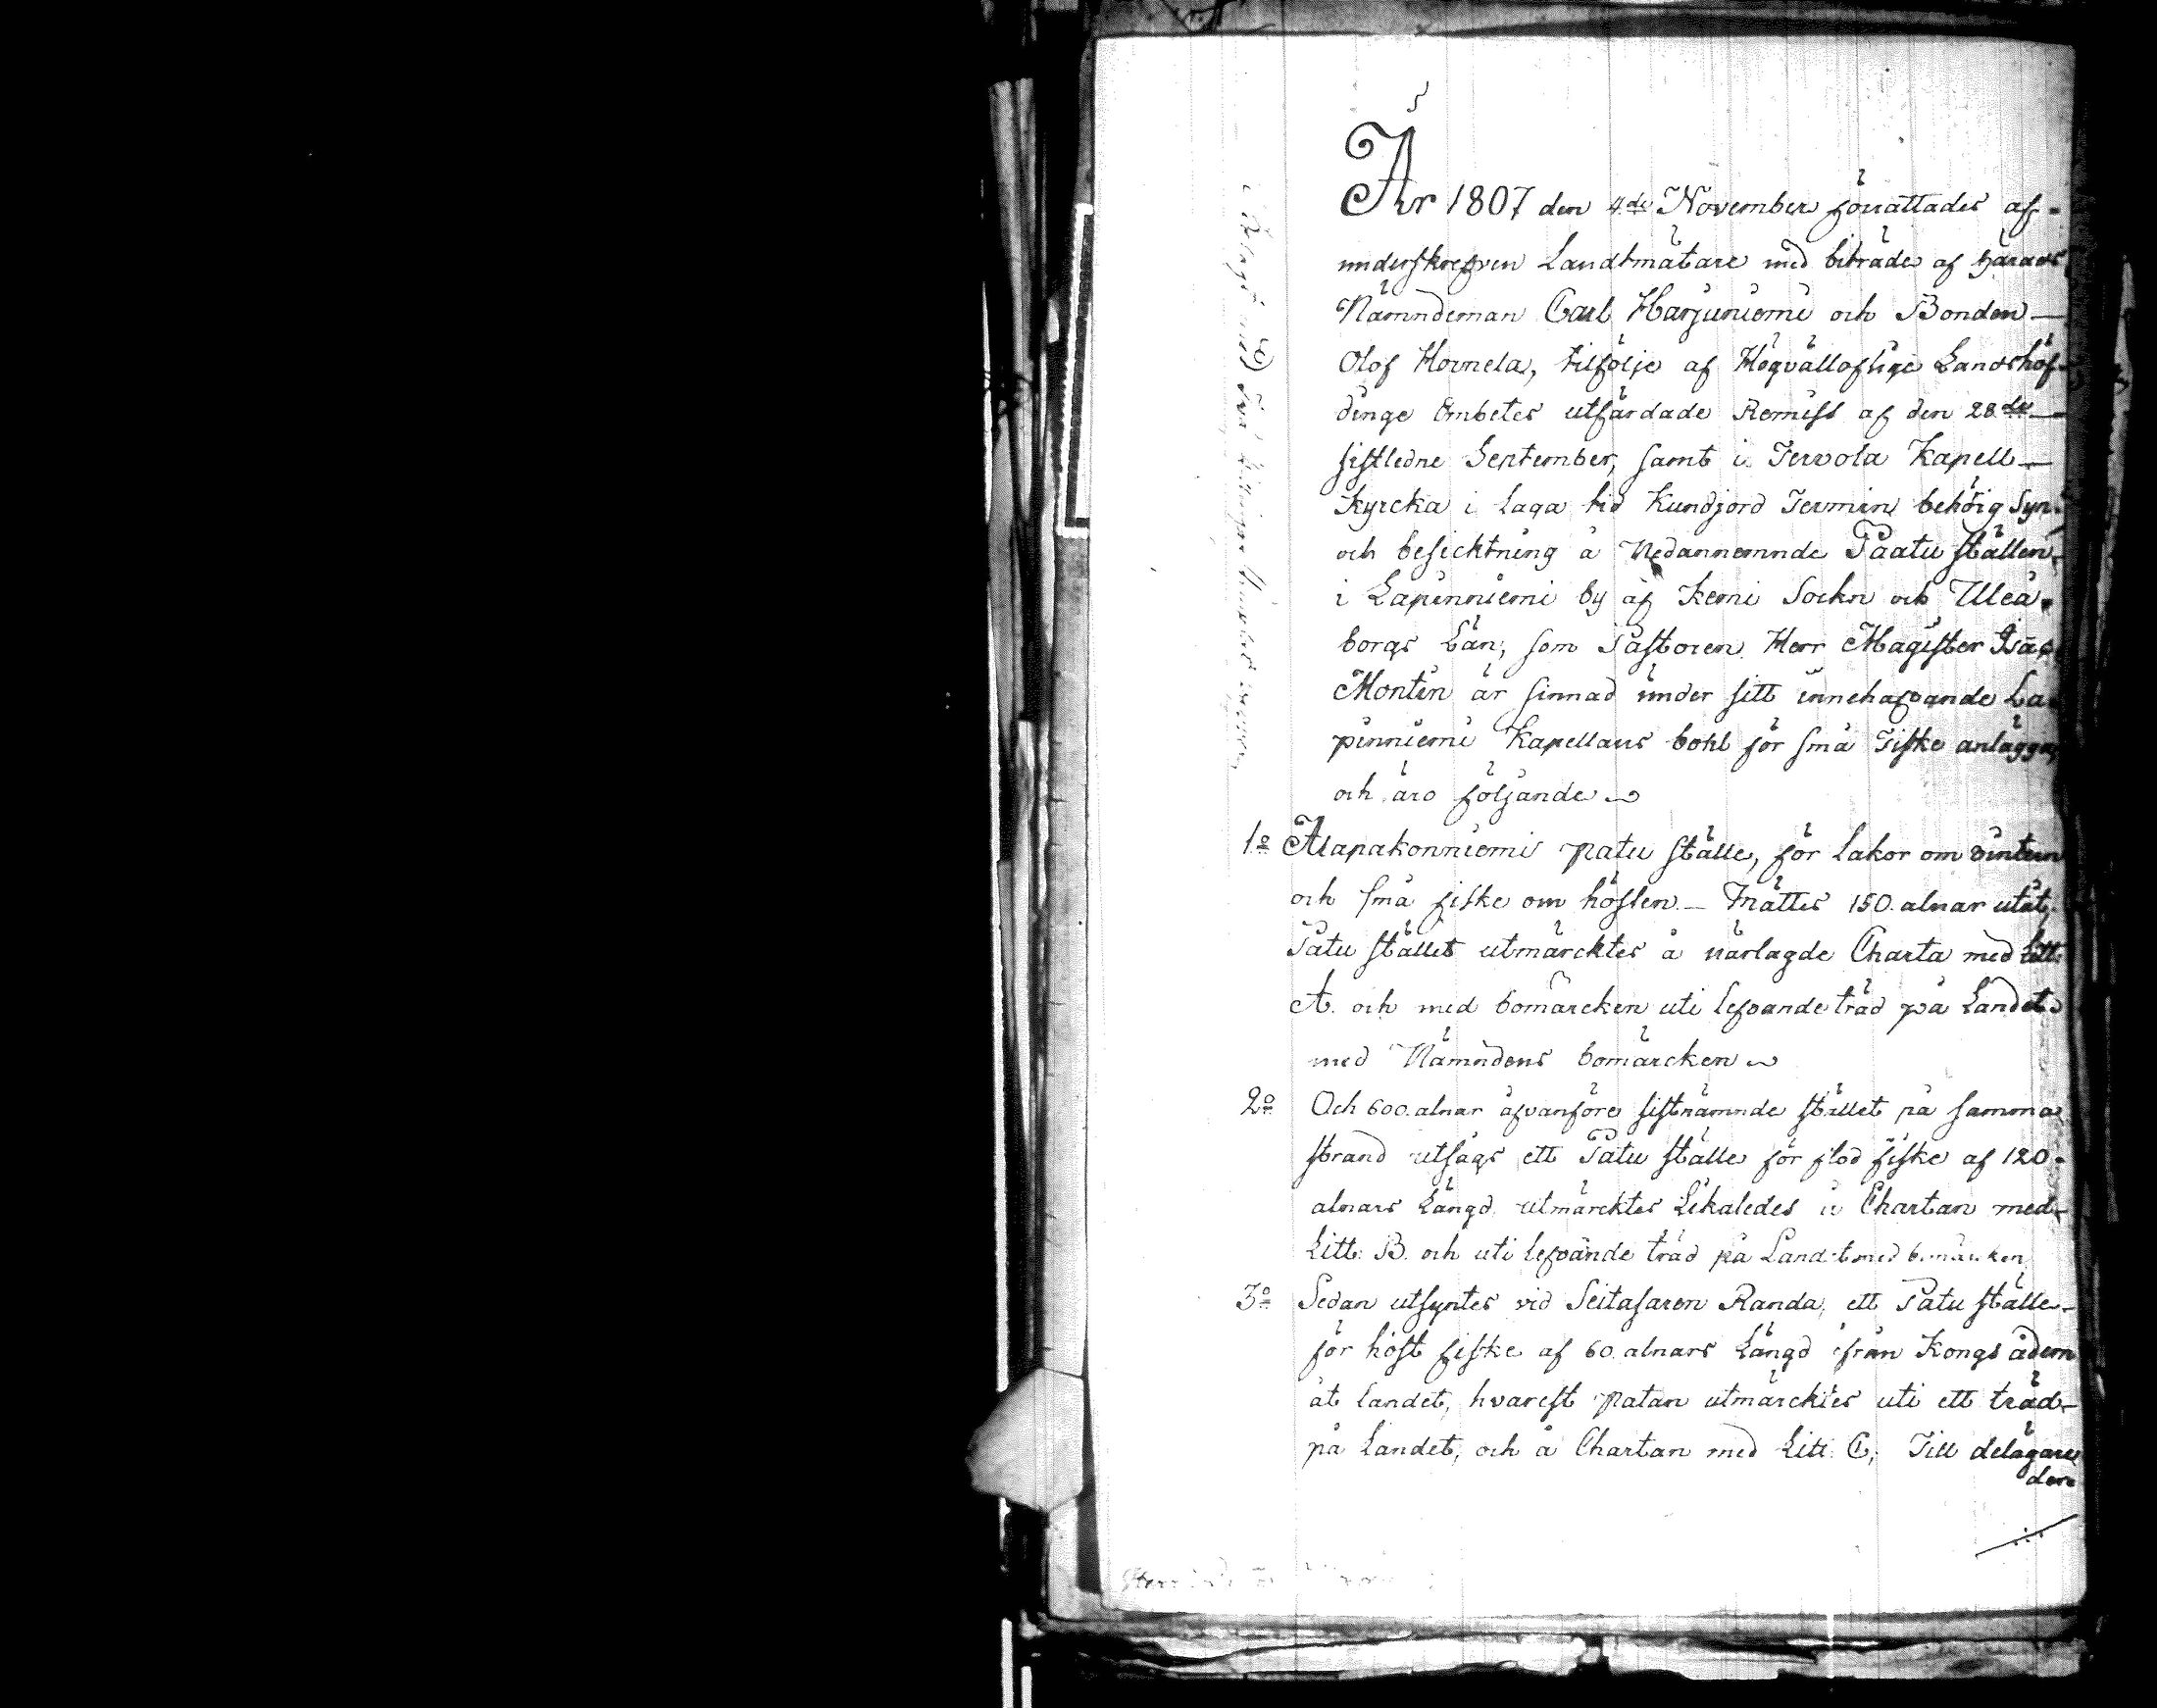 År 1807 den 4de November förrättades af
underskrefven Landtmätare med biträde af Härads
Nämndeman Carl Harjuniemi och Bonden
Olof Hornela, tilfölje af Högvälloflige Landshöf-
dinge Embetes utfärdade Remiss af den 28de
sistledne September, samt i Tervola Kapell
Kyrcka i Laga tid Kundjord Termin behörig Syn
och besicktning å Nedannemnde Paatu ställen
i Lapinniemi by af Kemi Sockn och Uleå-
borgs Län, som Pastoren Herr Magister Isac
Montin är sinnad under sitt innehafvande La-
pinniemi Kapellans bohl för små Fiske anlägga,
och äro följande
1o Alapakonniemi patu ställe, för Lakor om vintern
och små fiske om hösten. Mättes 150 alnar utåt,
Patu stället utmärcktes å närlagde Charta med Litt.
A. och med bomärcken uti lefvande träd på Landet
med Nämndens bomärcken
2o Och 600 alnar åfvanföre sistnämnde stället på samma
strand utsågs ett Patu ställe för flod fiske af 120
alnars Längd utmärcktes Likaledes å Chartan med
Litt: B. och uti lefvande träd på Landet med bomärcken
3o Sedan utsyntes vid Seitasaren Randa, ett Patu ställe
för höst fiske af 60 alnars Längd ifrån Kongs ådern
åt landet, hvarest patan utmärcktes uti ett träd
på Landet, och å Chartan med Litt. C; Till delägare
den